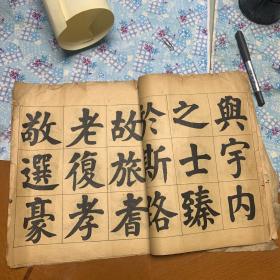 與宇内
之士臻
於斯路
故旅耆
老復孝
敬選豪